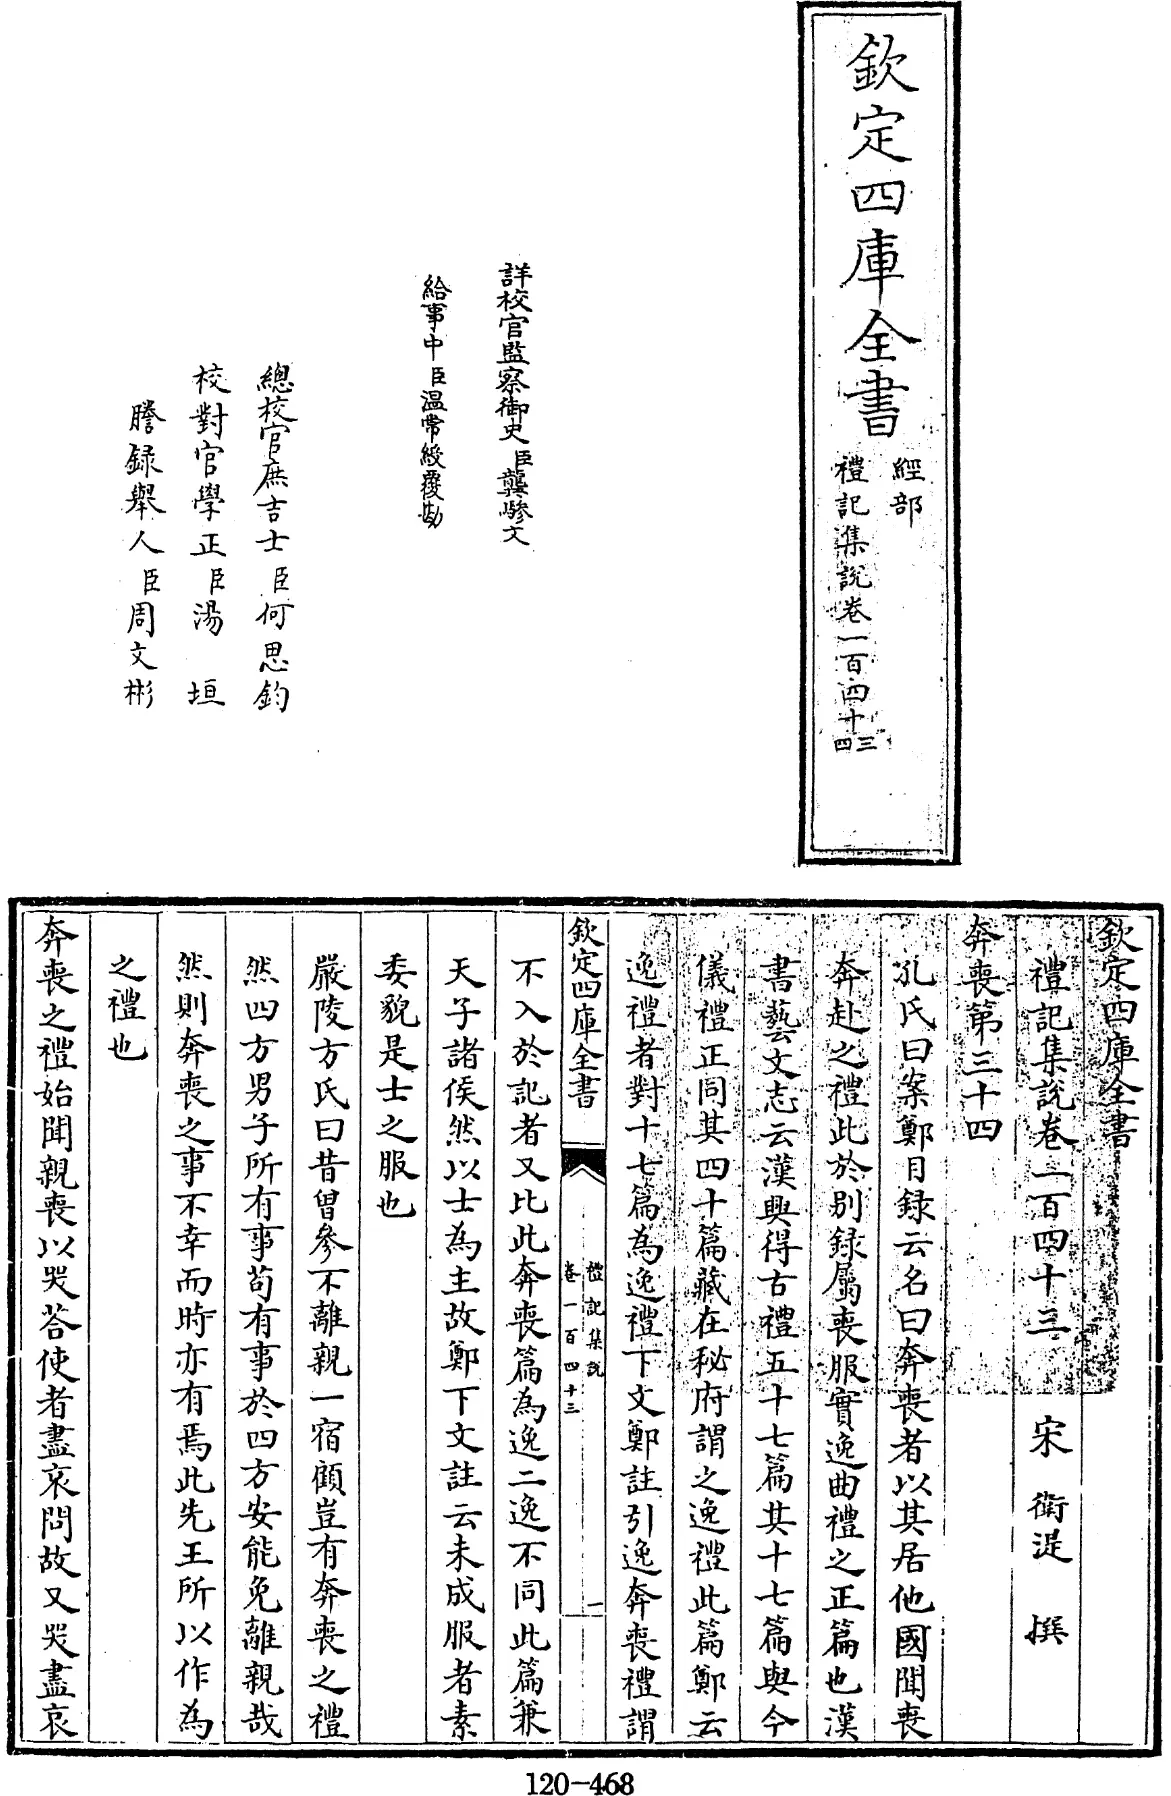 欽定四庫全書
經部
禮記集說卷一百四十三
四
詳校官監察御史臣龔驂文
給事中臣溫常綬覆勘
總校官庶吉士臣何思鈞
校對官學正臣湯垣
謄錄舉人臣周文彬
欽定四庫全書
禮記集說卷一百四十三 宋 衛湜 撰
奔喪第三十四
孔氏曰案鄭目録云名曰奔喪者以其居他國聞喪
奔赴之禮此於别録屬喪服實逸曲禮之正篇也漢
書藝文志云漢興得古禮五十七篇其十七篇與今
儀禮正同其四十篇藏在秘府謂之逸禮此篇鄭云
逸禮者對十七篇為逸禮下文鄭註引逸奔喪禮謂
欽定四庫全書
禮記集說
卷一百四十三
一
不入於記者又比此奔喪篇為逸二逸不同此篇兼
天子諸侯然以士為主故鄭下文註云未成服者素
委貌是士之服也
嚴陵方氏曰昔曾參不離親一宿顧豈有奔喪之禮
然四方男子所有事苟有事於四方安能免離親哉
然則奔喪之事不幸而時亦有焉此先王所以作為
之禮也
奔喪之禮始聞親喪以哭荅使者盡哀問故又哭盡哀
120-468